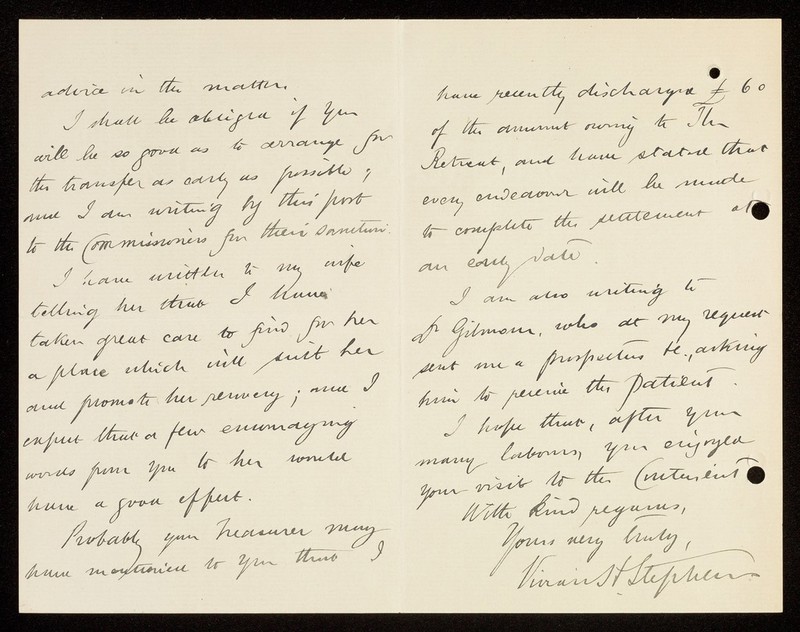 advice in the matter.
I shall be obliged if you
will be so good as to arrange for
the transfer as early as possible;
and I am writing by this post
to the Commissioners for their sanction.
I have written to my wife
telling her that I have
taken great care to find for her
a place which will suit her
and promote her recovery; and I
expect that a few encouraging
words from you to her would
have a good effect.
Probably your Treasurer may
have mentioned to you that I
have recently discharged £60
of the amount owing to The
Retreat, and have stated that
every endeavour will be made
to complete the settlement at
an early date.
I am also writing to
Dr Gilmour, who at my request
sent me a prospectus &c., asking
him to receive the patient.
I hope that, after your
many labours, you enjoyed
your visit to the Continent
With kind regards,
Yours very truly,
Vivian H. Stephens